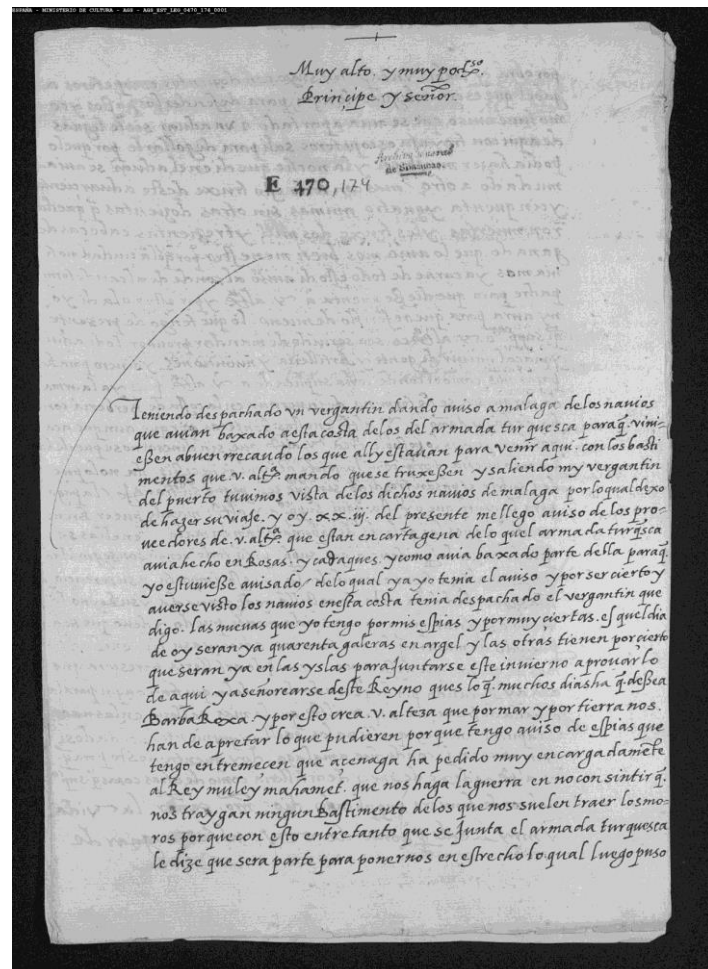 ESPAÑA - MINISTERIO DE CULTURA - AGS - AGS_EST_LEG_0470_174_0001
Muy alto. y muy pod.so.
Principe y señor.
Archivo General
de Simancas
E 470, 174
Teniendo despachado vn vergantin dando aviso a malaga de los navios
que avian baxado a esta costa de los del armada turquesca para q. vini-
eßen a buen rrecaudo los que ally estavan para venir aqui. con los basti
mentos que. v. alt.ª. mando que se truxeßen y saliendo my vergantin
del puerto tuvimos vista de los dichos navios de malaga por lo qual dexo
de hazer su viaje. y oy. xx.iij. del presente me llego aviso de los pro-
veedores de. v. alt.ª. que estan en cartagena de lo quel armada turq̃sca
avia hecho en Rosas. y cadaques. y como avia baxado parte della para q.
yo estuvieße avisado / de lo qual ya yo tenia el aviso y por ser cierto y
averse visto los navios en esta costa tenia despachado el vergantin que
digo. las nuevas que yo tengo por mis espias y por muy ciertas. es quel dia
de oy seran ya quarenta galeras en argel y las otras tienen por cierto
que seran ya en las yslas para Juntarse este invierno a provar lo
de aqui y a señorearse deste Reyno ques lo q. muchos dias ha q. deßea
Barba Roxa. y por esto crea. v. alteza que por mar y por tierra nos.
han de apretar lo que pudieren porque tengo aviso de espias que
tengo en tremecen que acenaga ha pedido muy encargadamẽte
al Rey muley mahamet. que nos haga la guerra en no consintir q.
nos traygan ningun Bastimento de los que nos suelen traer los mo-
ros porque con esto entretanto que se Junta el armada turquesca
le dize que sera parte para ponernos en estrecho lo qual luego puso